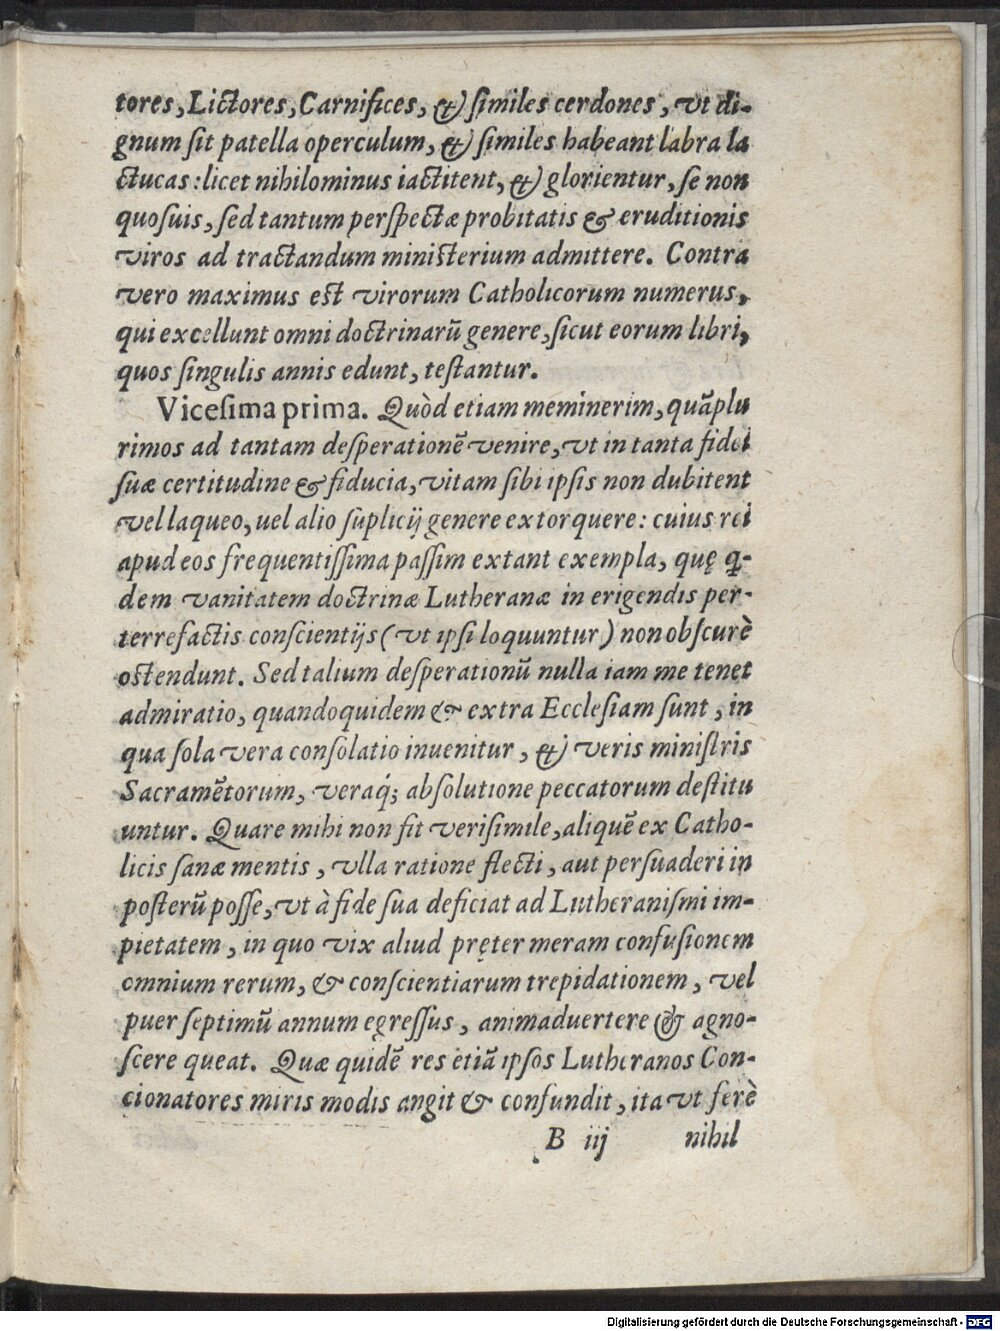 tores, Lictores, Carnifices, & ſimiles cerdones, vt di-
gnum ſit patella operculum, & ſimiles habeant labra la
ctucas: licet nihilominus iactitent, & glorientur, ſe non
quoſuis, ſed tantum perſpectæ probitatis & eruditionis
viros ad tractandum miniſterium admittere. Contra
vero maximus eſt virorum Catholicorum numerus,
qui excellunt omni doctrinarū genere, ſicut eorum libri,
quos ſingulis annis edunt, teſtantur.
Viceſima prima. Quòd etiam meminerim, quāplu
rimos ad tantam deſperationē venire, vt in tanta fidei
ſuæ certitudine & fiducia, vitam ſibi ipſis non dubitent
vel laqueo, uel alio ſuplicij genere extorquere: cuius rei
apud eos frequentiſſima paſſim extant exempla, quę q̃-
dem vanitatem doctrinæ Lutheranæ in erigendis per-
terrefactis conſcientijs (vt ipſi loquuntur) non obſcurè
oſtendunt. Sed talium deſperationū nulla iam me tenet
admiratio, quandoquidem & extra Eccleſiam ſunt, in
qua ſola vera conſolatio inuenitur, & veris miniſtris
Sacramētorum, veraq́; abſolutione peccatorum deſtitu
untur. Quare mihi non fit veriſimile, aliquē ex Catho-
licis ſanæ mentis, vlla ratione flecti, aut perſuaderi in
poſterū poſſe, vt à fide ſua deficiat ad Lutheraniſmi im-
pietatem, in quo vix aliud pręter meram confuſionem
omnium rerum, & conſcientiarum trepidationem, vel
puer ſeptimū annum egreſſus, animaduertere & agno-
ſcere queat. Quæ quidē res etiā ipſos Lutheranos Con-
cionatores miris modis angit & confundit, ita vt ferè
B iij nihil
Digitalisierung gefördert durch die Deutsche Forschungsgemeinschaft - DFG